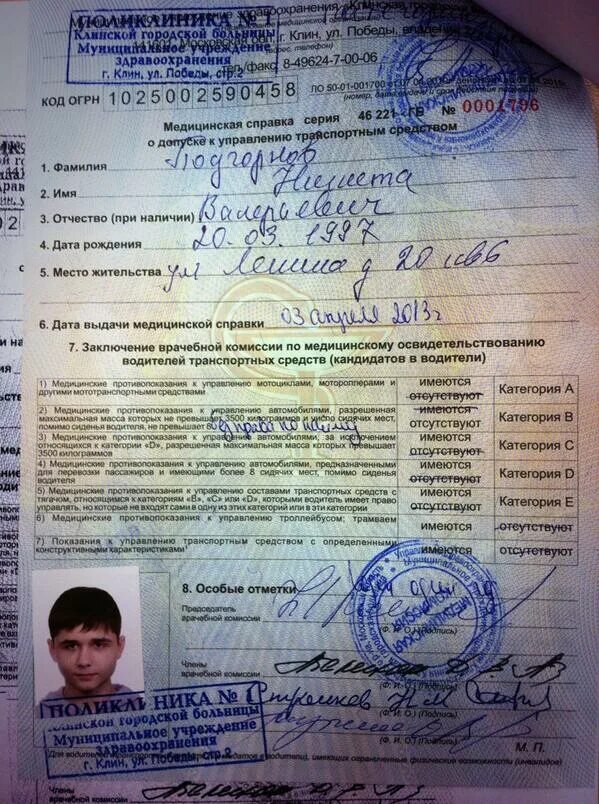 ПОЛИКЛИНИКА № 1
Клинской городской больницы
Муниципальное учреждение
здравоохранения
г. Клин, ул. Победы, стр.2
141601, Московская обл., г. Клин, ул. Победы, владение
тел./факс 8-49624-7-00-06
КОД ОГРН 1025002590458
ЛО-50-01-001700
(номер, дата выдачи и срок действия лицензии)
Медицинская справка серия 46 221 - ГБ № 0001796
о допуске к управлению транспортным средством
1. Фамилия Подгорнов
2. Имя Никита
3. Отчество (при наличии) Валерьевич
4. Дата рождения 20.03.1997
5. Место жительства ул Ленина д 20 кв6
6. Дата выдачи медицинской справки 03 апреля 2013г
7. Заключение врачебной комиссии по медицинскому освидетельствованию
водителей транспортных средств (кандидатов в водители)
1) Медицинские противопоказания к управлению мотоциклами, мотороллерами и
другими мототранспортными средствами
имеются
отсутствуют
Категория А
2) Медицинские противопоказания к управлению автомобилями, разрешенная
максимальная масса которых не превышает 3500 килограммов и число сидячих мест,
помимо сиденья водителя, не превышает 8
без права по найму
имеются
отсутствуют
Категория В
3) Медицинские противопоказания к управлению автомобилями, за исключением
относящихся к категории «D», разрешенная максимальная масса которых превышает
3500 килограммов
имеются
отсутствуют
Категория С
4) Медицинские противопоказания к управлению автомобилями, предназначенными
для перевозки пассажиров и имеющими более 8 сидячих мест, помимо сиденья
водителя
имеются
отсутствуют
Категория D
5) Медицинские противопоказания к управлению составами транспортных средств с
тягачом, относящимся к категориям «В», «С» или «D», которыми водитель имеет право
управлять, но которые не входят сами в одну из этих категорий или в эти категории
имеются
отсутствуют
Категория Е
6) Медицинские противопоказания к управлению троллейбусом; трамваем
имеются
отсутствуют
7) Показания к управлению транспортным средством с определенными
конструктивными характеристиками
имеются
отсутствуют
8. Особые отметки
Председатель
врачебной комиссии
(Ф. И. О.) (Подпись)
Члены
врачебной комиссии
(Ф. И. О.) (Подпись)
(Ф. И. О.) (Подпись)
(Ф. И. О.) (Подпись)
М. П.
ПОЛИКЛИНИКА № 1
Клинской городской больницы
Муниципальное учреждение
здравоохранения
г. Клин, ул. Победы, стр.2
имеющих ограниченные физические возможности (инвалидов)
Члены
врачебной комиссии